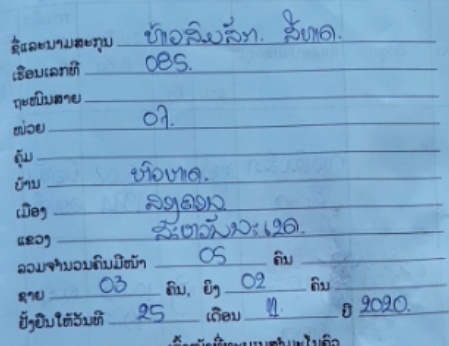 ຊື່ແລະນາມສະກຸນ ທ້າວສົມສັກ. ສີຫາດ.
ເຮືອນເລກທີ 085.
ຖະໜົນສາຍ
ໜ່ວຍ 07.
ຄຸ້ມ
ບ້ານ
ເມືອງ ສອງຄອນ
ແຂວງ ສະຫວັນນະເຂດ.
ລວມຈຳນວນຄົນມີໜ້າ 05 ຄົນ
ຊາຍ 03 ຄົນ, ຍິງ 02 ຄົນ
ຢັ້ງຢືນໃຫ້ວັນທີ 25 ເດືອນ 11. ປີ 2020.